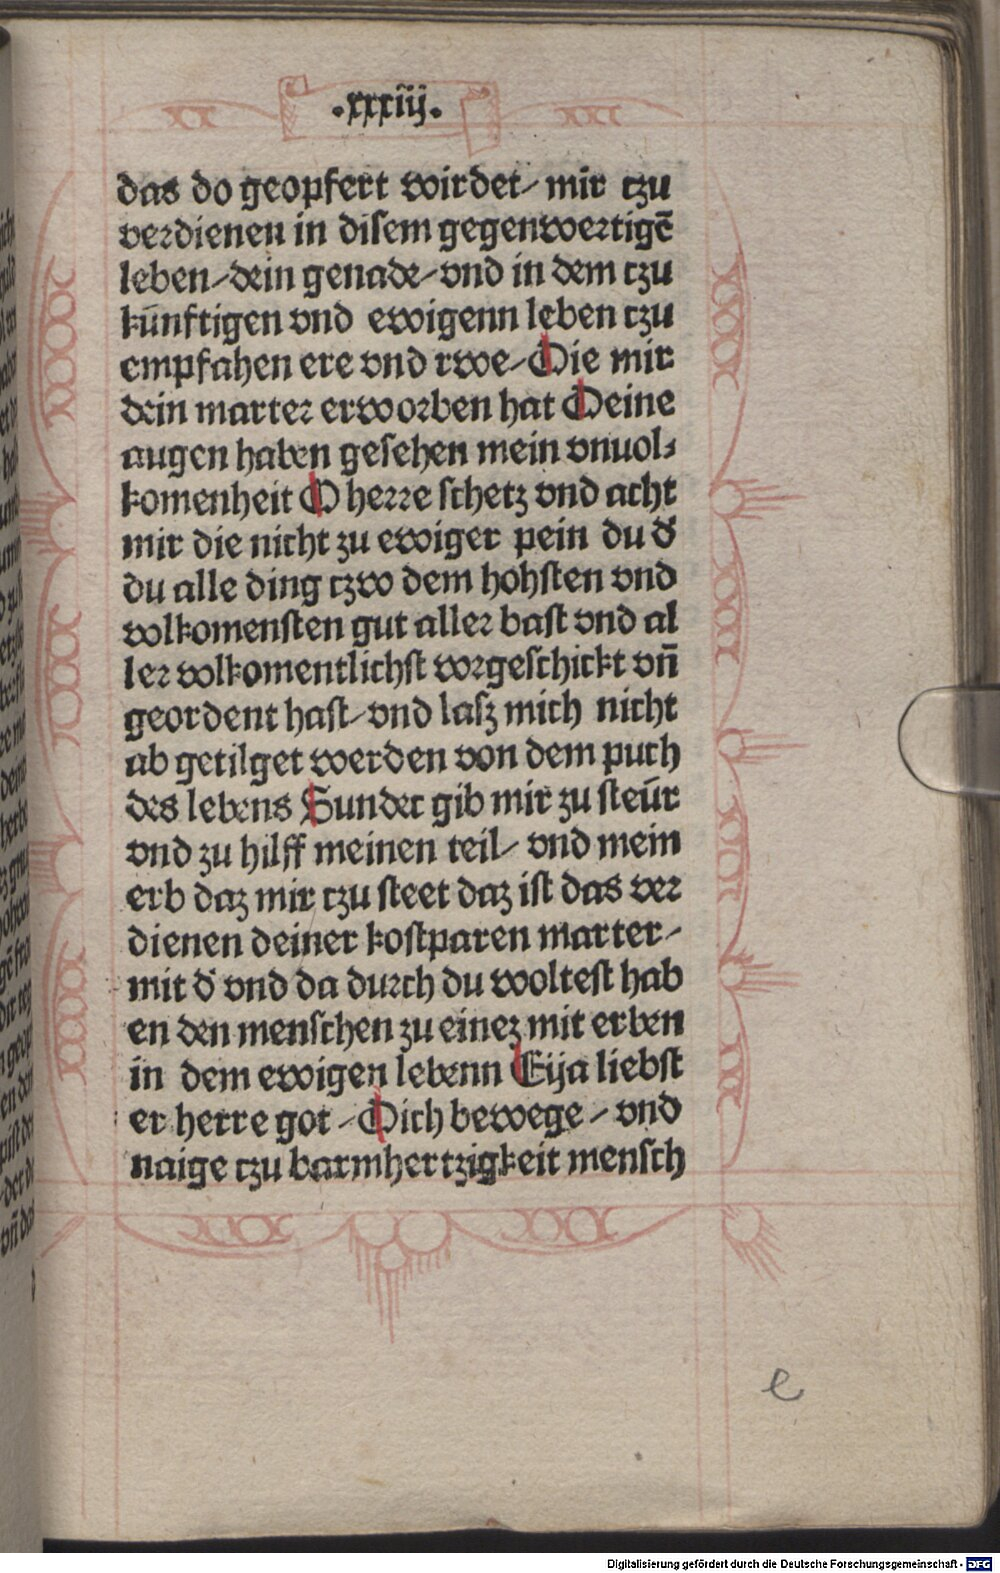 ·xxxiij·
das do geopfert wirdet, mir tzu
verdienen in disem gegenwertigē
leben, dein genade, vnd in dem tzu
kūnftigen vnd ewigenn leben tzu
empfahen ere vnd rwe, Die mir
dein marter erworben hat Deine
augen haben gesehen mein vnuol⸗
komenheit O herre schetz vnd acht
mir die nicht zu ewiger pein du d̕
du alle ding tzwo dem hohsten vnd
volkomensten gut aller bast vnd al
ler volkomentlichst vorgeschickt vn̄
geordent hast, vnd lasz mich nicht
ab getilget werden von dem puch
des lebens Sunder gib mir zu steūr
vnd zu hilff meinen teil, vnd mein
erb daz mir tzu steet daz ist das ver
dienen deiner kostparen marter,
mit d̕ vnd da durch du woltest hab
en den menschen zu einez mit erben
in dem ewigen lebenn Eija liebst
er herre got, Dich bewege, vnd
naige tzu barmhertzigkeit mensch
e
Digitalisierung gefördert durch die Deutsche Forschungsgemeinschaft - DFG